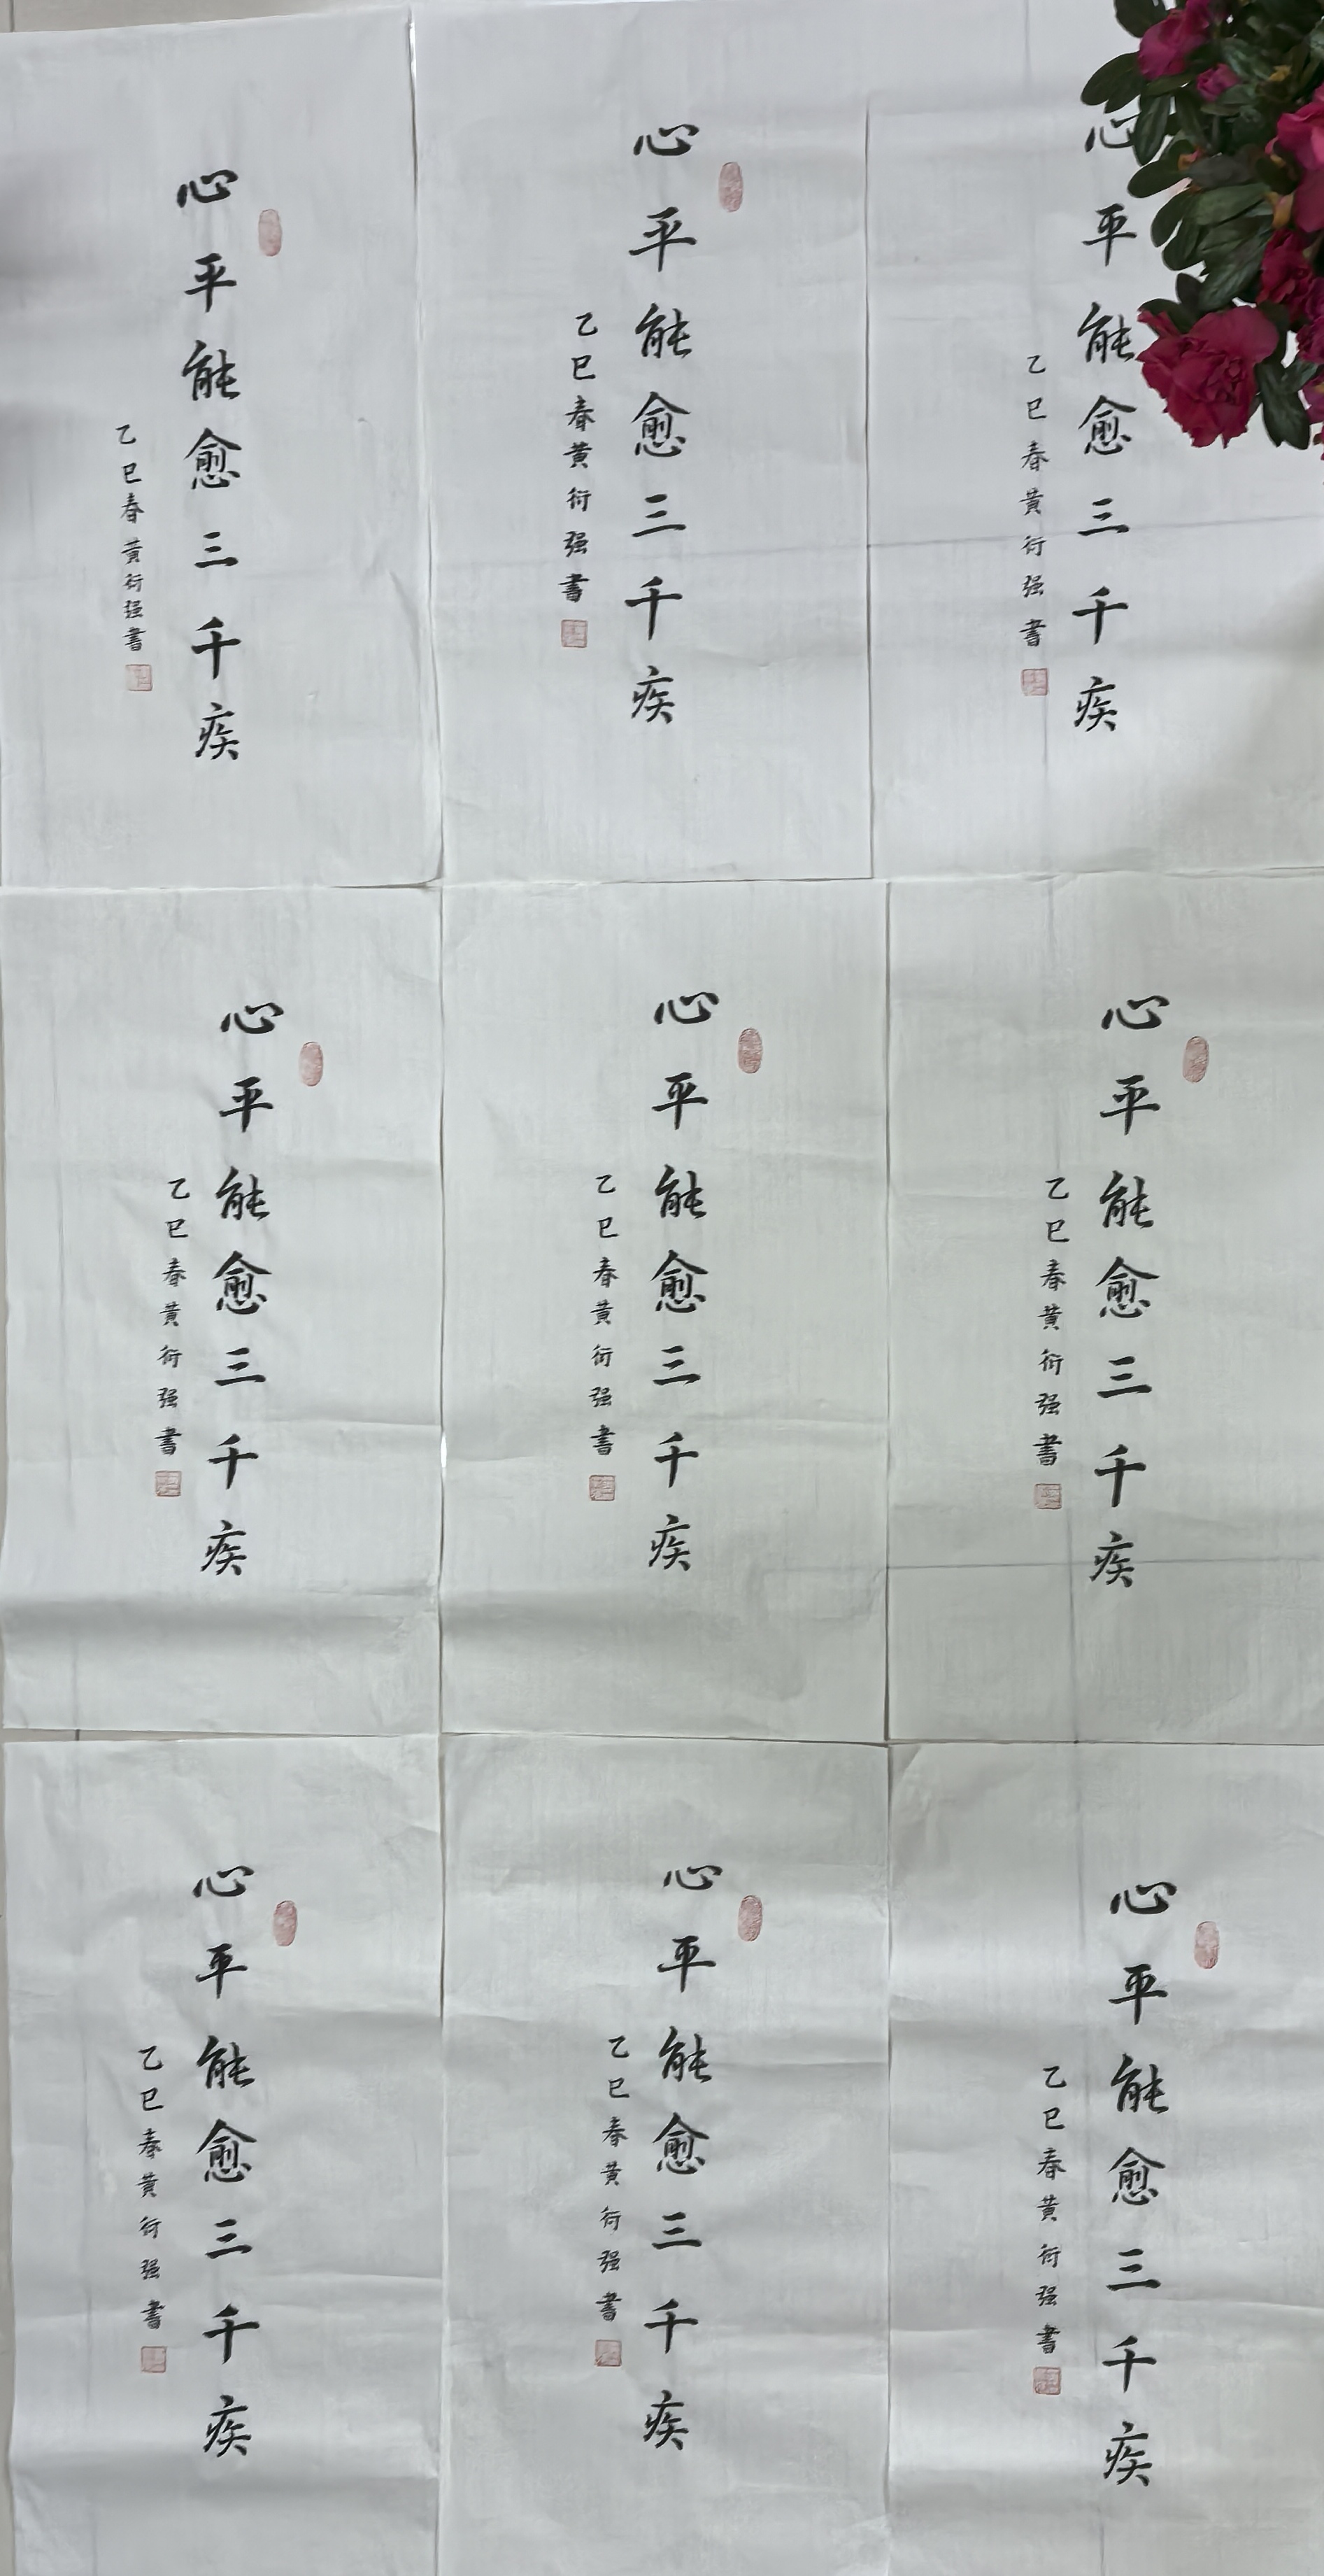 心平能愈三千疾
乙巳春黄衍强书
心平能愈三千疾
乙巳春黄衍强書
心平能愈三千疾
乙巳春黄衍强書
心平能愈三千疾
乙巳春黄衍强書
心平能愈三千疾
乙巳春黄衍强書
心平能愈三千疾
乙巳春黄衍强書
心平能愈三千疾
乙巳春黄衍强書
心平能愈三千疾
乙巳春黄衍强書
心平能愈三千疾
乙巳春黄衍强書